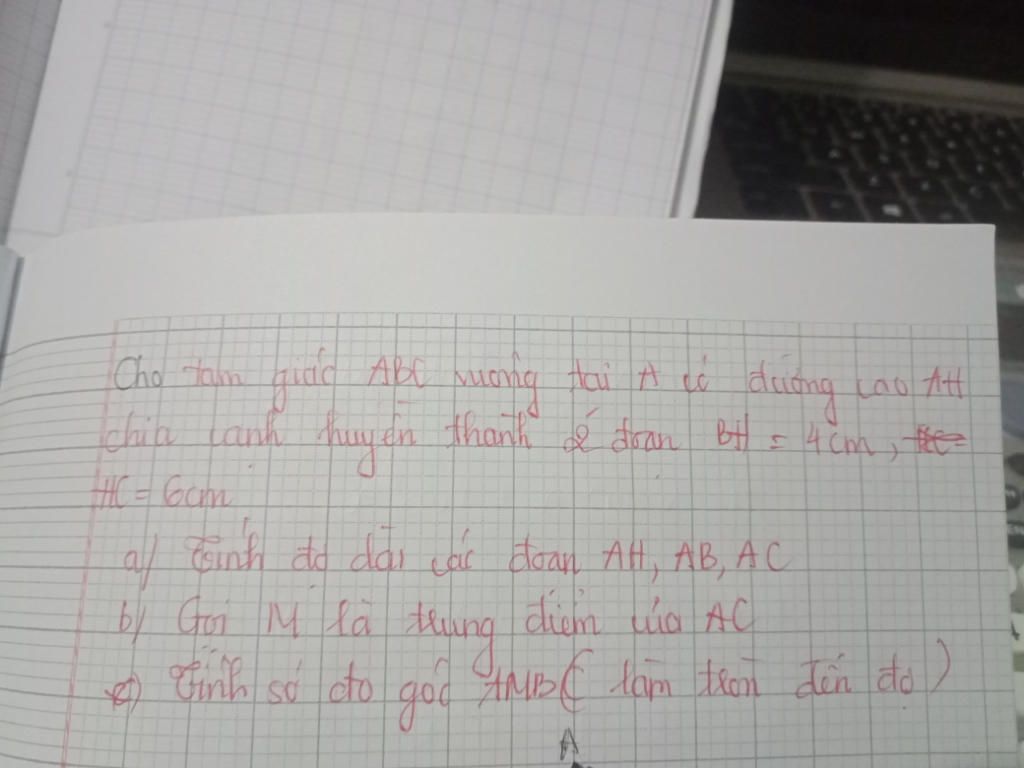 Cho tam giác ABC vuông tại A có đường cao AH
chia cạnh huyền thành 2 đoạn BH = 4cm,
HC = 6cm
a) Tính độ dài các đoạn AH, AB, AC
b) Gọi M là trung điểm của AC
Tính số đo góc AMB ( làm tròn đến độ )
A